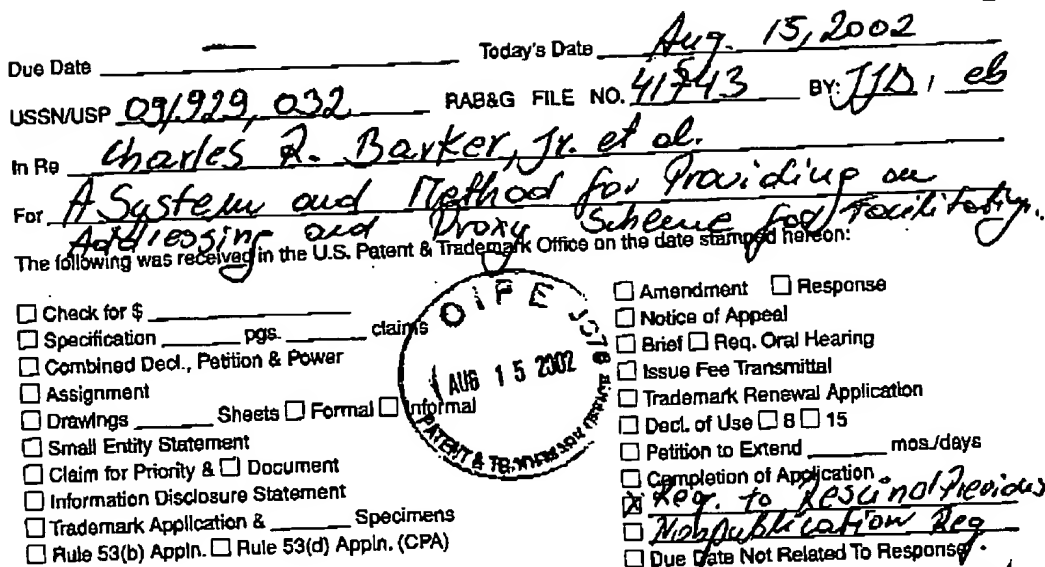 Due Date — Today's Date Aug. 15, 2002
USSN/USP 09/929,032 RAB&G FILE NO. 41743 BY: JJD / eb
In Re Charles R. Barker, Jr. et al.
For A System and Method for Providing an
Addressing and Proxy Scheme for Facilitating.
The following was received in the U.S. Patent & Trademark Office on the date stamped hereon:
☐ Check for $
☐ Specification pgs. claims
☐ Combined Decl., Petition & Power
☐ Assignment
☐ Drawings Sheets ☐ Formal ☐ Informal
☐ Small Entity Statement
☐ Claim for Priority & ☐ Document
☐ Information Disclosure Statement
☐ Trademark Application & Specimens
☐ Rule 53(b) Appln. ☐ Rule 53(d) Appln. (CPA)
OIPE
AUG 15 2002
PATENT & TRADEMARK
☐ Amendment ☐ Response
☐ Notice of Appeal
☐ Brief ☐ Req. Oral Hearing
☐ Issue Fee Transmittal
☐ Trademark Renewal Application
☐ Decl. of Use ☐ 8 ☐ 15
☐ Petition to Extend mos./days
☐ Completion of Application
☒ Req. to Rescind Previous
☐ Nonpublication Req
☐ Due Date Not Related To Response.